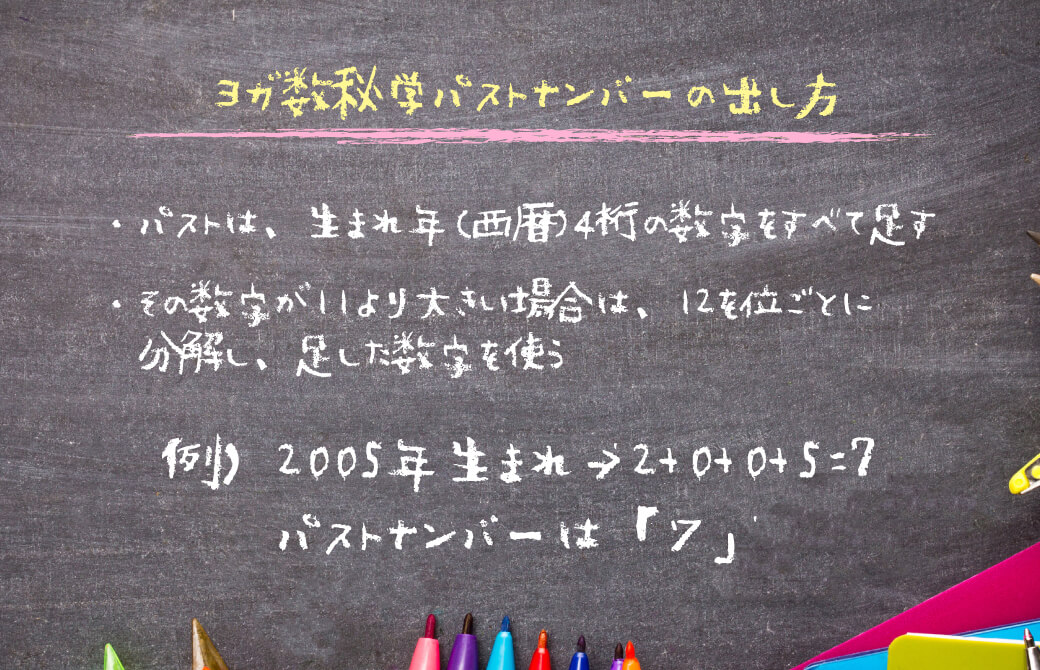 ヨガ数秘学パストナンバーの出し方
・パストは、生まれ年(西暦)4桁の数字をすべて足す
・その数字が11より大きい場合は、12を位ごとに
分解し、足した数字を使う
例) 2005年生まれ→2+0+0+5=7
パストナンバーは「7」